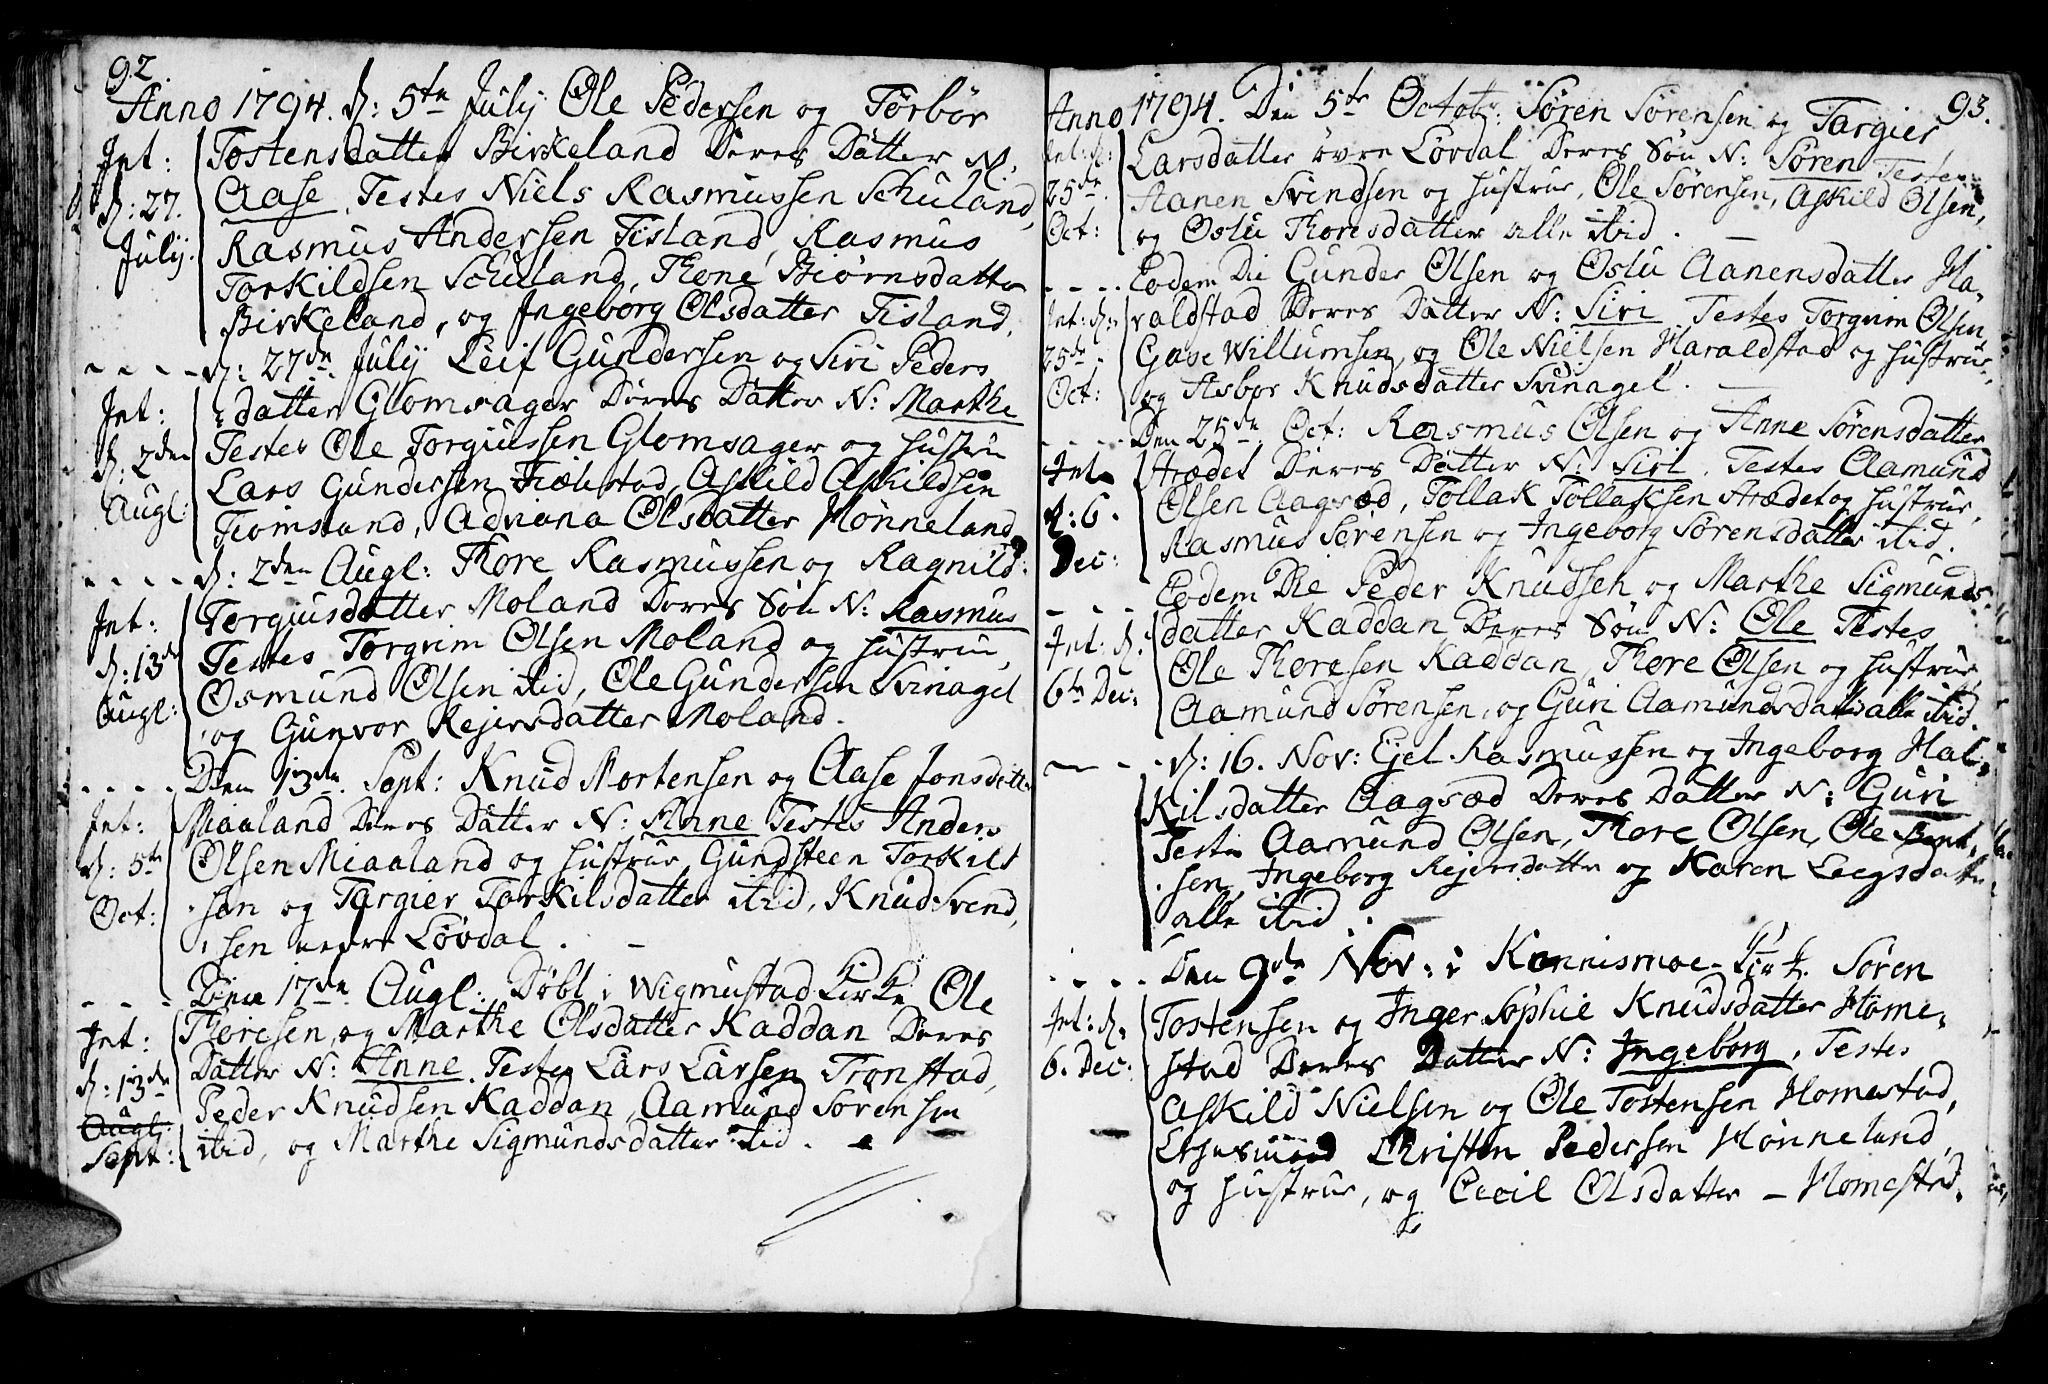 92.
Anno 1794. d: 5te July Ole Pedersen og Torbor
Int: Tostensdatter Birkeland Deres Datter N.
d: 27. Aase, Testes Niels Rasmussen Schuland,
July. Rasmus Andersen Fisland, Rasmus
Torkildsen Schuland, Thone Biörnsdatter
Birkeland, og Ingeborg Olsdatter Fisland.
d: 27de July Leif Gundersen og Siri Peders
Int: datter Glomsager Deres Datter N: Marthe
d: 2den Testes Ole Torgiussen Glomsager og Hustrue
Augl: Lars Gundersen, Askild Askildsen
Tiomsland, Adriana Olsdatter Hönneland.
d: 2den Augl: Thore Rasmussen og Ragnild
Int: Torgiusdatter Moland Deres Sön N: Rasmus
d: 13de Testes Torgrim Olsen Moland og Hustrue,
Augl: Osmund Olsen ibid, Ole Gundersen Svinagel
og Gunvor Rejersdatter Moland.
Den 13de Sept: Knud Mortensen og Aase Jonsdatter
Int: Miaaland Deres Datter N: Anne Testes Anders
d: 5te Olsen Miaaland og Hustrue, Gundsteen Torkilt
Oct: sen og Targier Torkilsdatter ibid, Knud Svend,
sen nedre Lövdal.
Den 17de Augl: Döbt i Wigmustad Kirke Ole
Int: Thoresen, og Marthe Olsdatter Kaddan Deres
d: 13de Datter N: Anne. Testes Lars Larsen Tronstad,
Augl: Peder Knudsen Kaddan, Aamund Sörensen
Sept: ibid, og Marthe Sigmundsdatter ibid.
93.
Anno 1794. Den 5te Octobr: Sören Sörensen og Targier
Int: d: Larsdatter övre Lövdal Deres Sön N: Sören Testes
25de Aanen Svendsen og Hustrue, Ole Sörensen, Askild Olsen,
Oct: og Oslu Thoresdatter alle ibid.
Eodem Die Gunder Olsen og Oslu Aanensdatter Ha,
Int: d: raldstad Deres Datter N: Siri Testes Torgrim Olsen
25de Gase Willumsen, og Ole Nielsen Haraldstad og Hustrue,
Oct: og Asbor Knudsdatter Svinagel.
Den 25de Oct: Rasmus Olsen og Anne Sörensdatter
Int. Strædet Deres Datter N: Siri. Testes Aamund
d: 6. Olsen Aagsæd, Tollak Tollaksen Strædet og Hustrue,
Dec: Rasmus Sörensen og Ingeborg Sörensdatter ibid.
Eodem Die Peder Knudsen og Marthe Sigmunds
Int: d: datter Kaddan, Deres Sön N: Ole Testes
6te Dec: Ole Thoresen Kaddan, Thore Olsen og Hustrue,
Aamund Sörensen, og Guri Aamundsdatter alle ibid.
d: 16. Nov: Ejel Rasmussen og Ingeborg Hal,
kilsdatter Aagsæd Deres Datter N: Guri
Testes Aamund Olsen, Thore Olsen, Ole Bent,
sen, Ingeborg Rejersdatter og Karen Leegsdatter
alle ibid.
Den 9de Nov: i Konnismoe Kirk. Sören
Int: d. Tostensen og Inger Sophie Knudsdatter Home,
6. Dec: stad Deres Datter N: Ingeborg. Testes
Askild Nielsen og Ole Tostensen Homestad,
Lehnsmand Christen Pedersen Hönneland,
og Hustrue, og Cecil Olsdatter - Homestad.